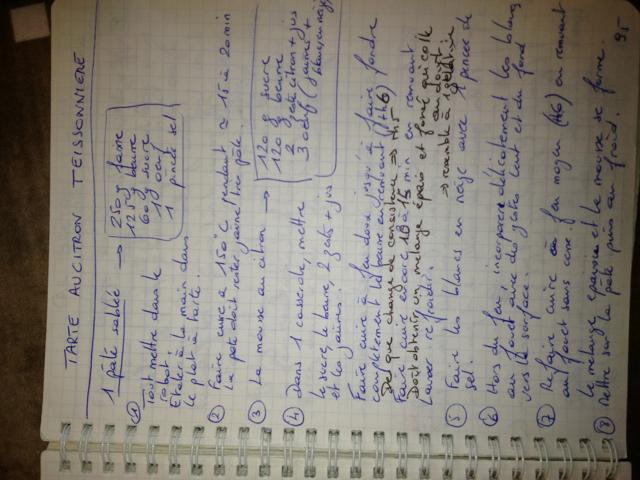 TARTE AU CITRON TEISSONNIÈRE
1 pâte sablée →
250 g farine
125 g beurre
60 g sucre
1 œuf
1 pincée sel
① Tout mettre dans le
robot.
Étaler à la main dans
le plat à tarte.
② Faire cuire à 150°C pendant ≈ 15 à 20 min
La pâte doit rester jaune très pâle.
③ La mousse au citron →
120 g sucre
120 g beurre
2 zestes citron + jus
3 œufs (jaunes +
blancs en neige)
④ Dans 1 casserole, mettre
le sucre, le beurre, 2 zestes + jus
et les jaunes.
Faire cuire à feu doux jusqu'à faire fondre
complètement le beurre en remuant (th 6)
Dès que change de consistance → th 5
Faire cuire encore 10 à 15 min en remuant
Doit obtenir un mélange épais et foncé qui colle
au doigt
→ ressemble à 1 gélatine
Laisser refroidir.
⑤ Faire les blancs en neige avec 1 pincée de
sel.
⑥ Hors du feu, incorporer délicatement les blancs
au fouet avec des gestes lents et du fond
vers la surface.
⑦ Refaire cuire à feu moyen (th6) en remuant
au fouet sans cesse.
Le mélange épaissit et la mousse se forme.
⑧ Mettre sur la pâte puis au froid.
95